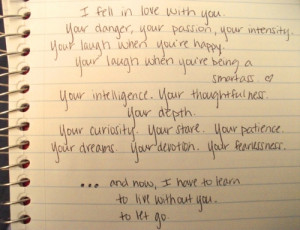 I fell in love with you.
Your danger, your passion, your intensity.
Your laugh when you're happy.
Your laugh when you're being a
smartass ♡
Your intelligence. Your thoughtfulness.
Your depth.
Your curiosity. Your stare. Your patience.
Your dreams. Your devotion. Your fearlessness.
... and now, I have to learn
to live without you.
to let go.